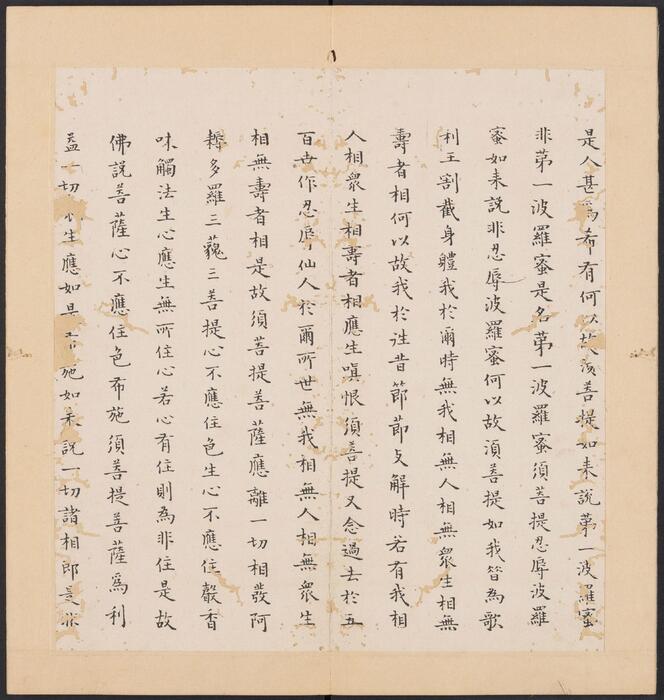 是人甚為希有何以故須菩提如来說第一波羅蜜
非第一波羅蜜是名第一波羅蜜須菩提忍辱波羅
蜜如来說非忍辱波羅蜜何以故須菩提如我昔為歌
利王割截身軆我於爾時無我相無人相無衆生相無
壽者相何以故我於往昔節節支解時若有我相
人相衆生相壽者相應生嗔恨須菩提又念過去於五
百世作忍辱仙人於爾所世無我相無人相無衆生
相無壽者相是故須菩提菩薩應離一切相發阿
耨多羅三藐三菩提心不應住色生心不應住聲香
味觸法生心應生無所住心若心有住則為非住是故
佛說菩薩心不應住色布施須菩提菩薩為利
益一切生應如是施如来說一切諸相即是非